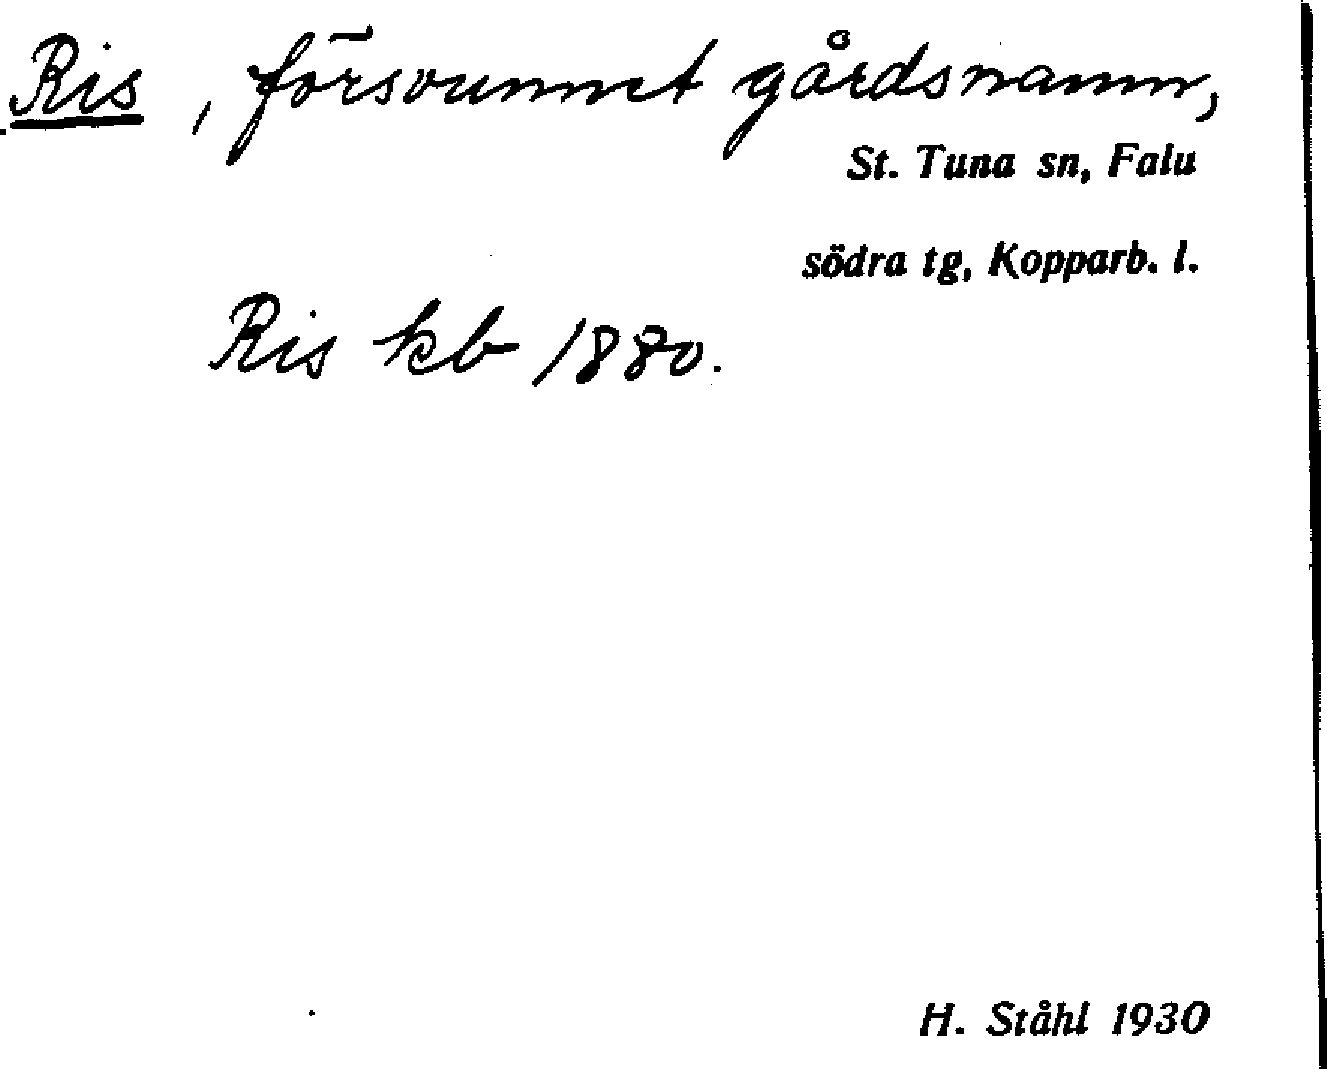 Ris, försvunnet gårdsnamn,
St. Tuna sn, Falu
södra tg, Kopparb. l.
Ris kb 1880.
H. Ståhl 1930